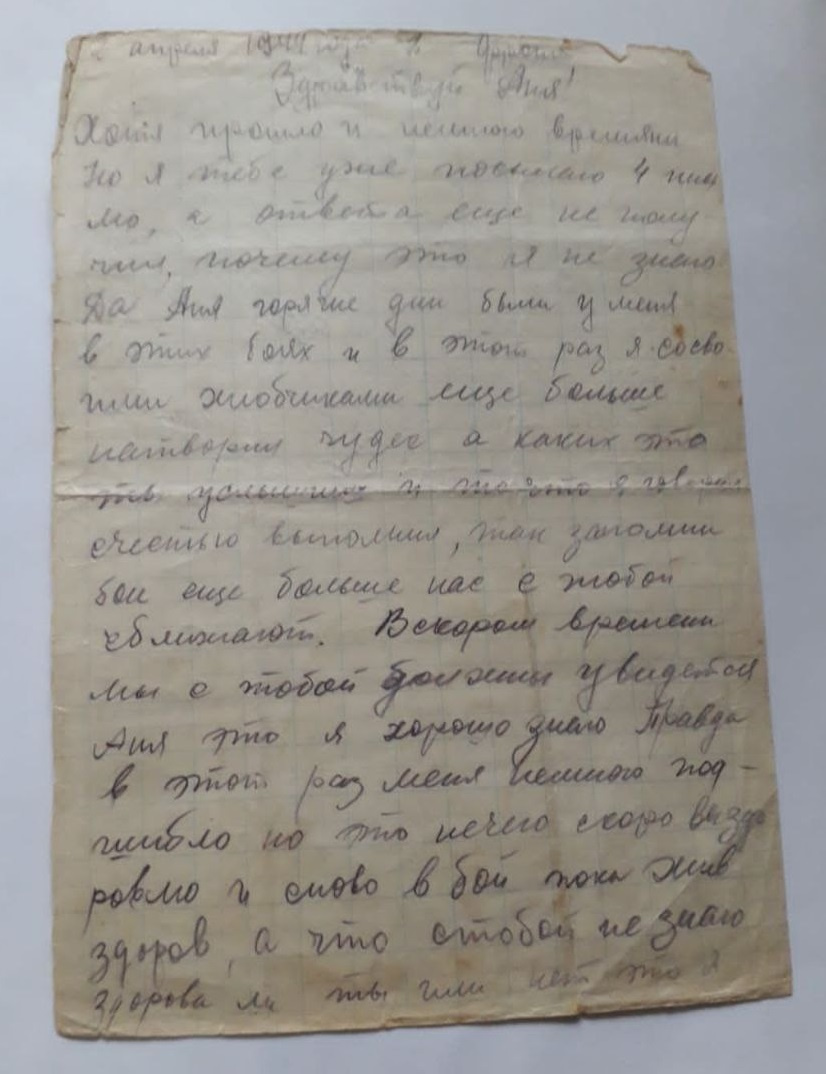 апреля 1944 года
Здравствуй Аня!
Хотя прошло и немного времяни
Но я тебе уже посылаю 4 пись
мо, а ответа еще не полу
чил, почему это я не знаю
Да Аня горячие дни были у меня
в этих боях и в этот раз я сосво
ими хлобчиками еще больше
натворил чудес а каких это
ты услышиш и то что я говорил
счестью выполнил, так запомни
бои еще больше нас с тобой
сближают. Вскором времени
мы с тобой должны увидется
Аня это я хорошо знаю Правда
в этот раз меня немного под-
шибло но это нечего скоро выздо
ровлю и снова в бой пока жив
здоров, а что стобой не знаю
здорова ли ты или нет это я